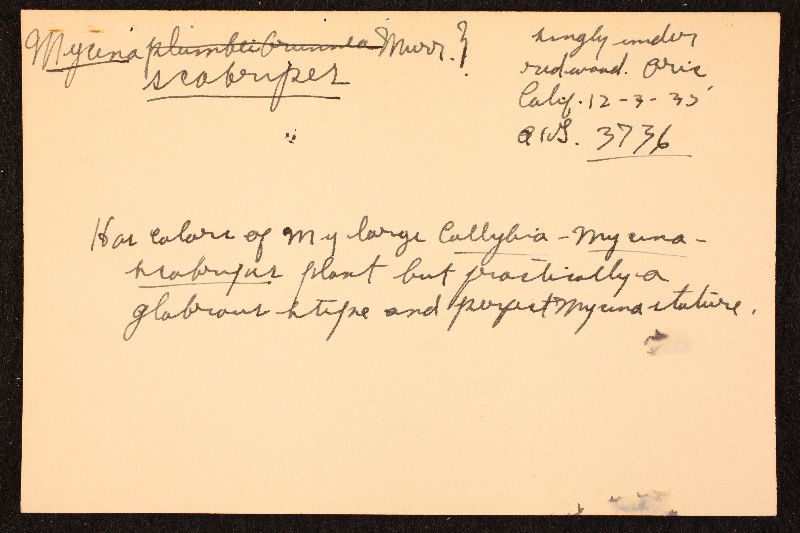 Mycena plumbeibrunnea Murr. ?
scabripes
singly under
redwood. Oric
Calif. 12-3-35
AHS. 3736
Has colors of my large Collybia-Mycena-
scabripes plant but practically a
glabrous stipe and perfect Mycena stature.